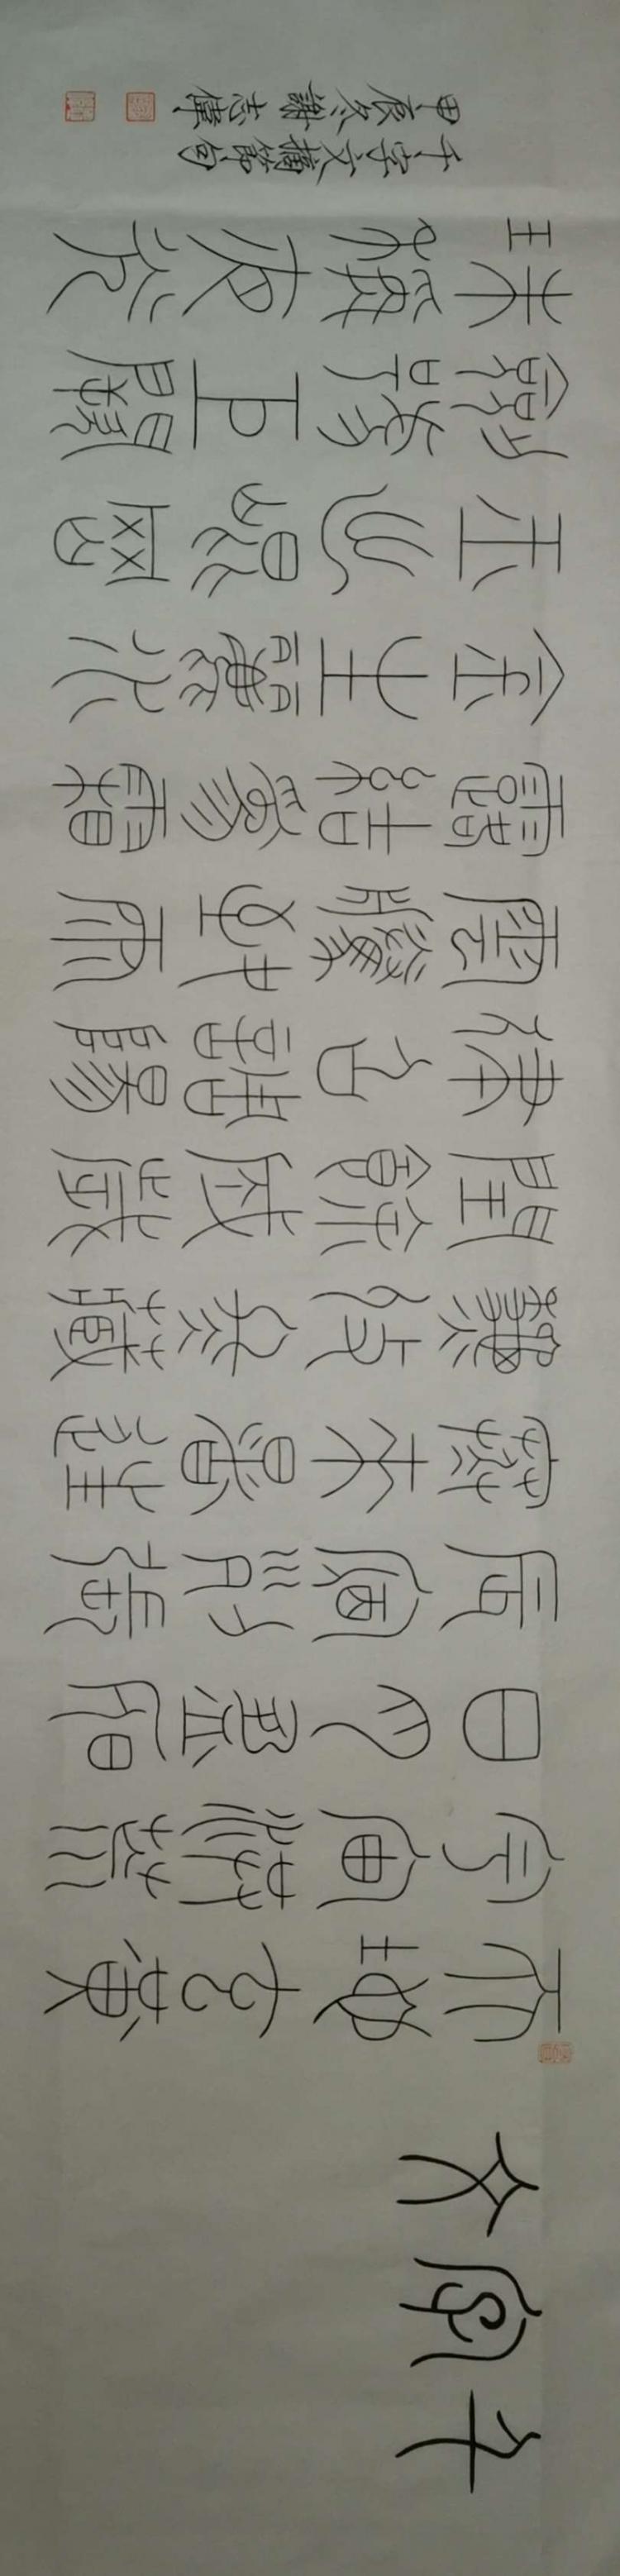 千字文
天地玄黃
宇宙洪荒
日月盈昃
辰宿列張
寒來暑往
秋收冬藏
閏餘成歲
律呂調陽
雲騰致雨
露結為霜
金生麗水
玉出崑岡
劍號巨闕
珠稱夜光
千字文摘節句
甲辰冬謝志偉